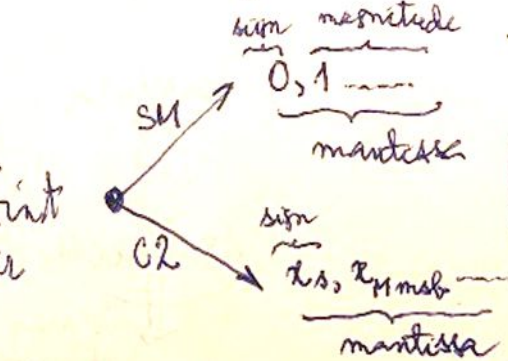 sign magnitude
0,1 ......
SM
mantissa
sign
C2
x_s, x_M msb ----
mantissa